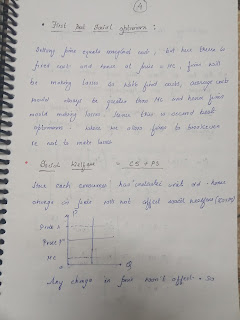 4
• First Best Social optimum :
Setting price equates marginal cost, but here there is
fixed cost and hence at price = MC, firms will
be making losses as with fixed costs, average costs
would always be greater than MC and hence firms
would making losses. Hence there is second best
optimum where we allow firms to
i.e. not to make losses
• Social Welfare = CS + PS
Since each consumer has unit - hence
change in price will not affect social welfare
P
Price
Price P'
MC
Q
Any change in price won't affect